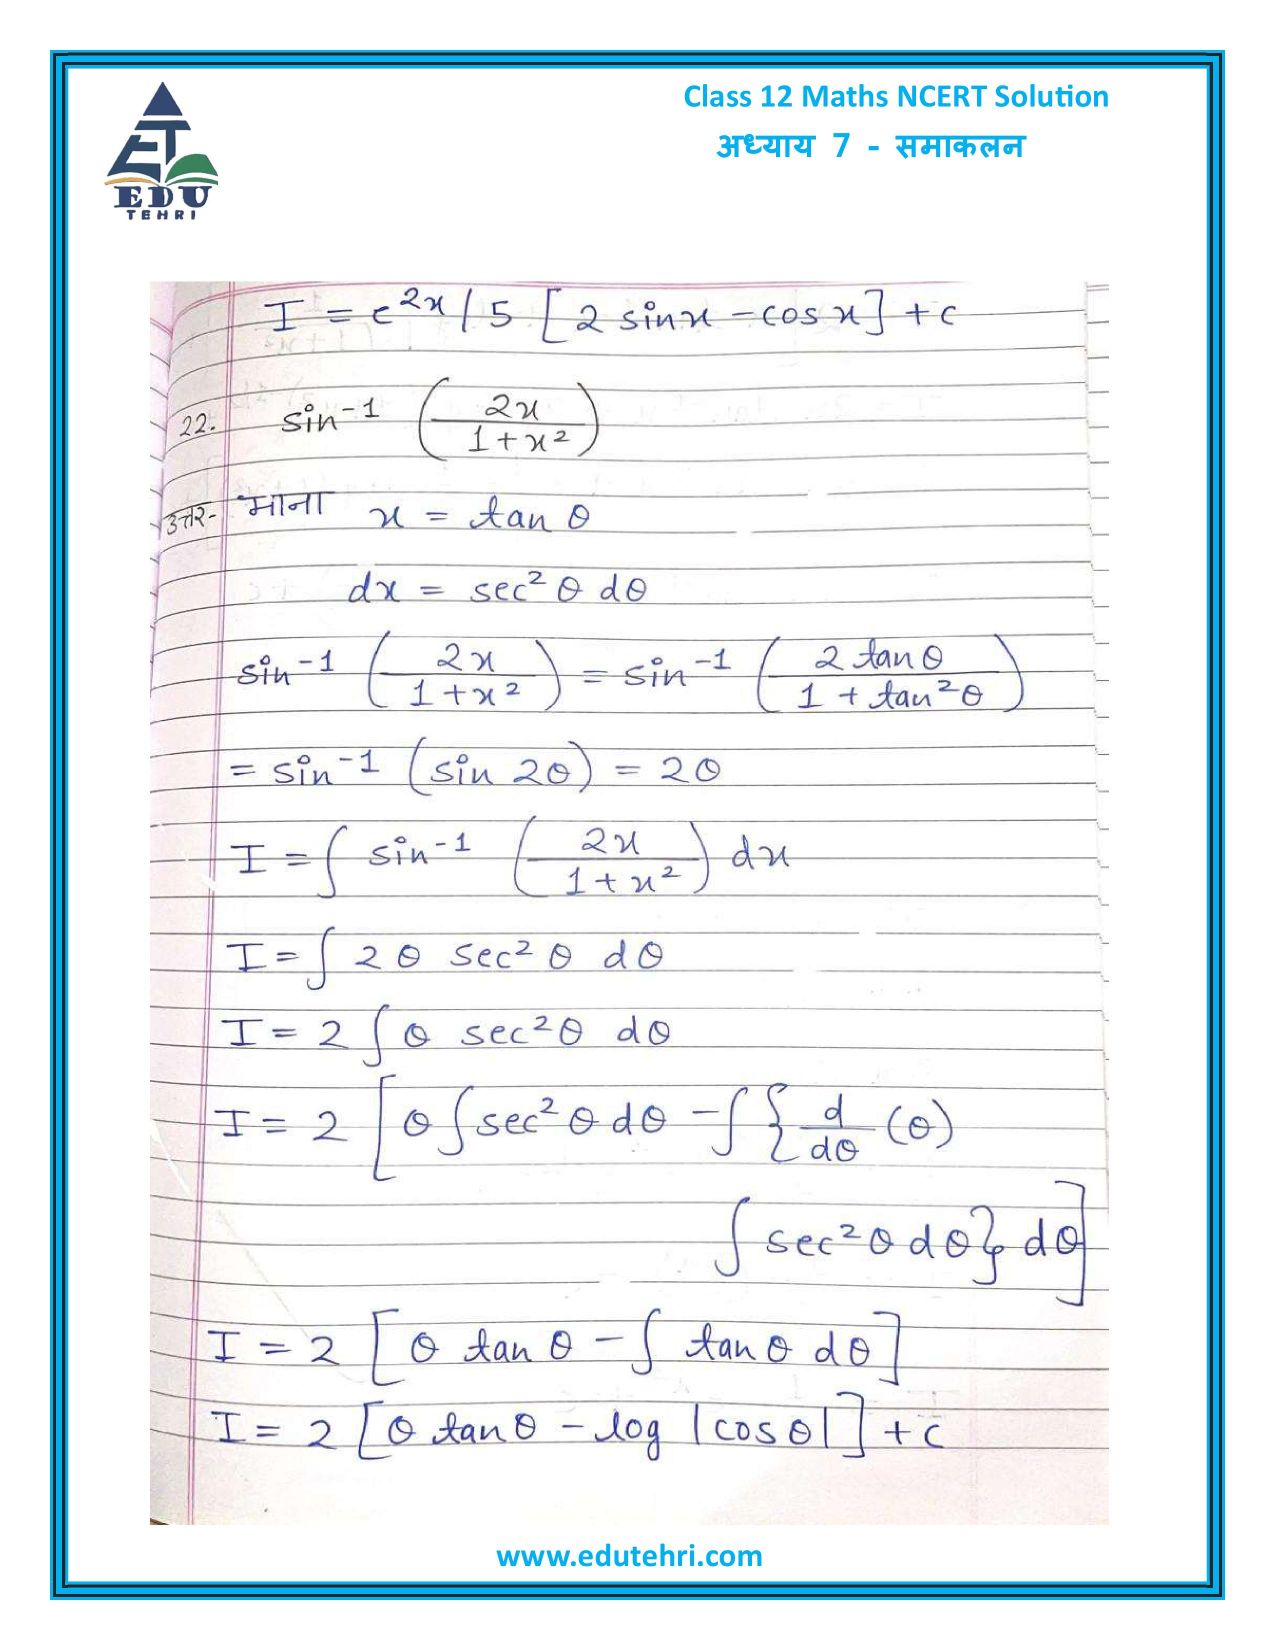 Class 12 Maths NCERT Solution
अध्याय 7 - समाकलन
EDU
TEHRI
I = e^2x / 5 [2 sinx - cos x] + c
22. sin^-1 (2x / 1+x^2)
उत्तर- माना x = tan θ
dx = sec^2 θ dθ
sin^-1 (2x / 1+x^2) = sin^-1 (2 tanθ / 1 + tan^2θ)
= sin^-1 (sin 2θ) = 2θ
I = ∫ sin^-1 (2x / 1+x^2) dx
I = ∫ 2θ sec^2 θ dθ
I = 2 ∫ θ sec^2θ dθ
I = 2 [θ ∫ sec^2 θ dθ - ∫ { d/dθ (θ)
∫ sec^2 θ dθ} dθ]
I = 2 [θ tan θ - ∫ tan θ dθ]
I = 2 [θ tanθ - log |cos θ|] + c
www.edutehri.com